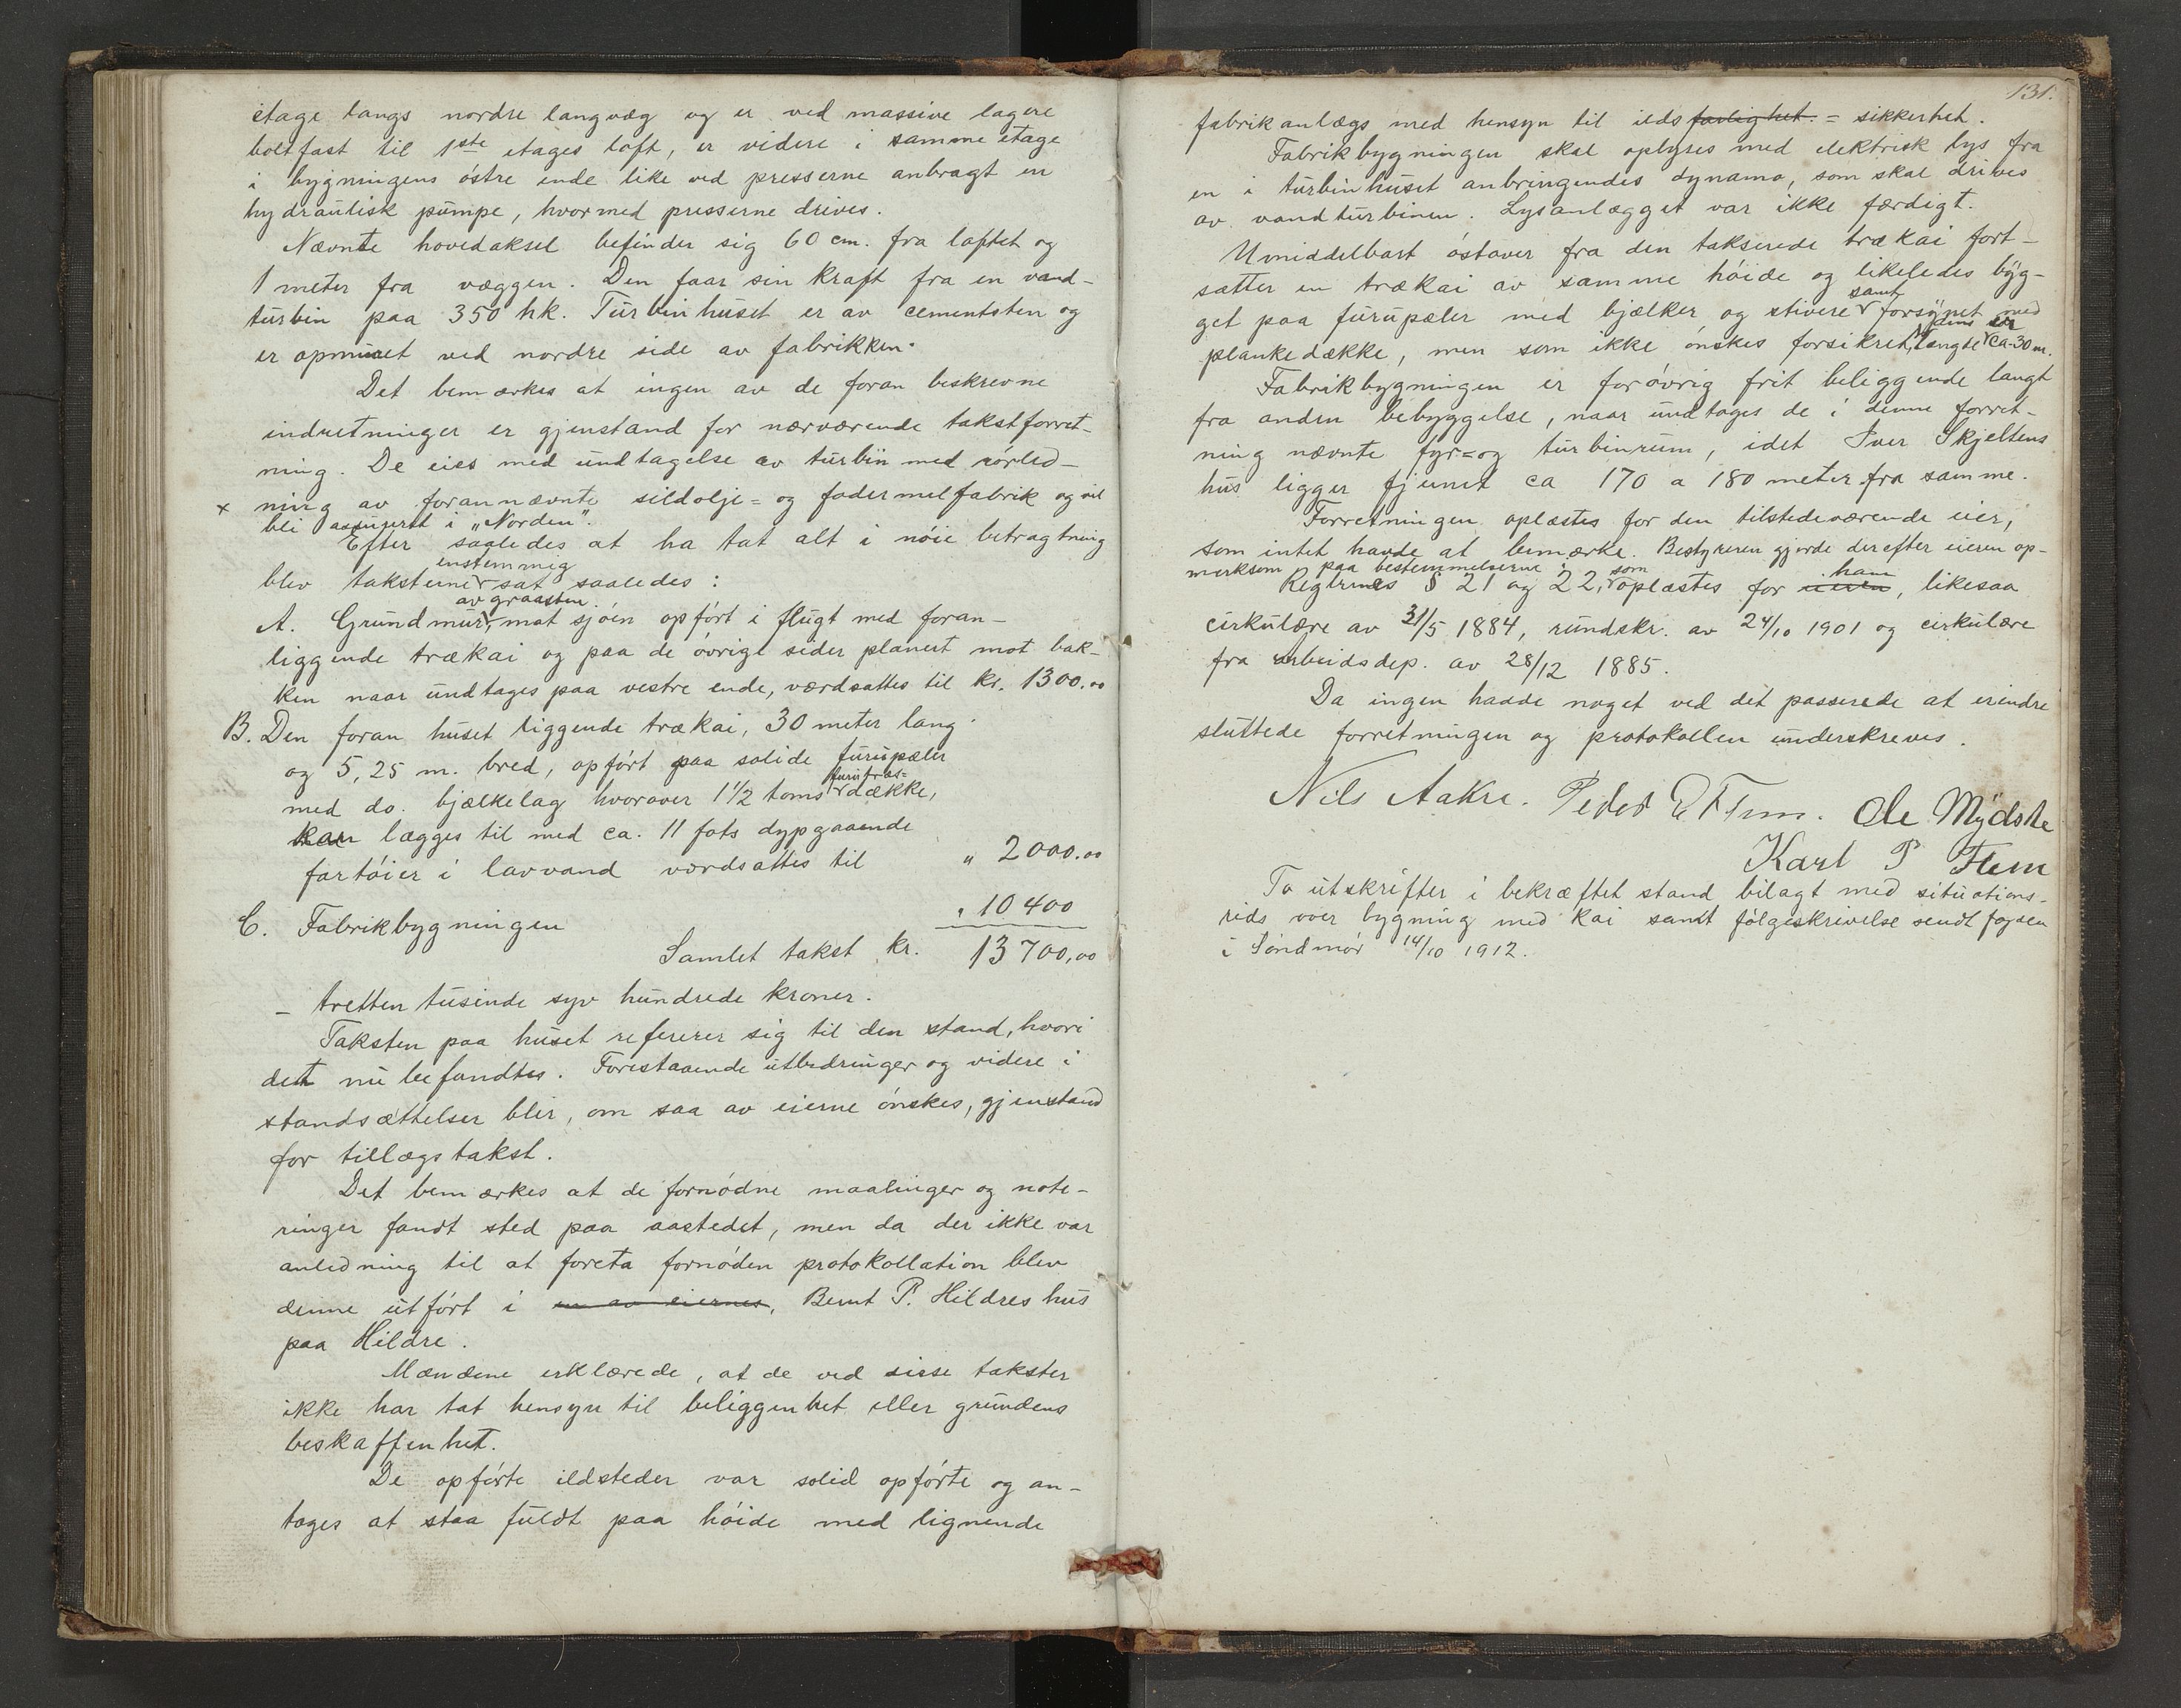 etage langs nordre langvæg og er ved massive lagere
boltfast til 1ste etages loft, er videre i samme etage
i bygningens østre ende like ved presserne anbragt en
hydraulisk pumpe, hvormed presserne drives.
Nævnte hovedaksel befinder sig 60 cm. fra loftet og
1 meter fra væggen. Den faar sin kraft fra en vand-
turbin paa 350 hk. Turbinhuset er av cementsten og
er opmuret ved nordre side av fabrikken.
Det bemærkes at ingen av de foran beskrevne
indretninger er gjenstand for nærværende takstforret-
ning. De eies med undtagelse av turbin med rørled-
x ning av forannævnte sildolje= og fodermelfabrik og vil
bli assurert i „Norden".
Efter saaledes at ha tat alt i nøie betragtning
enstemmig
blev taksterne sat saaledes:
av graasten
A. Grundmur, mot sjøen opført i flugt med foran-
liggende trækai og paa de øvrige sider planert mot bak-
ken naar undtages paa vestre ende, værdsattes til kr. 1300.00
B. Den foran huset liggende trækai, 30 meter lang
og 5,25 m. bred, opført paa solide furupæler
furutræs=
med do. bjælkelag hvorover 1 1/2 toms dække,
kan lægges til med ca. 11 fots dypgaaende
fartøier i lavvand værdsattes til „ 2000.00
C. Fabrikbygningen „ 10400
Samlet takst kr. 13700,00
- tretten tusinde syv hundrede kroner.
Taksten paa huset refererer sig til den stand, hvori
dett nu befandtes. Forestaaende utbedringer og videre i
standsættelser blir, om saa av eierne ønskes, gjenstand
for tillægstakst.
Det bemærkes at de fornødne maalinger og note-
ringer fandt sted paa aastedet, men da der ikke var
anledning til at foreta fornøden protokollation blev
denne utført i en av eiernes, Bernt P. Hildres hus
paa Hildre.
Mændene erklærede, at de ved disse takster
ikke har tat hensyn til beliggenhet eller grundens
beskaffenhet.
De opførte ildsteder var solid opførte og an-
tages at staa fuldt paa høide med lignende
131.
fabrikanlægs med hensyn til ildsfarlighet. = sikkerhet.
Fabrikbygningen skal oplyses med elektrisk lys fra
en i turbinhuset anbringendes dynamo, som skal drives
av vandturbinen. Lysanlægget var ikke færdigt.
Umiddelbart østover fra den takserede trækai fort-
sætter en trækai av samme høide og likeledes byg-
samt
get paa furupæler med bjælker og stivere forsynet med
dens er
plankedække, men som ikke ønskes forsikret, længde ca. 30 m.
Fabrikbygningen er forøvrig frit beliggende langt
fra anden bebyggelse, naar undtages de i denne forret-
ning nævnte fyr= og turbinrum, idet Iver Skjeltens
hus ligger fjernet ca 170 a 180 meter fra samme.
Forretningen oplæstes for den tilstedeværende eier,
som intet havde at bemærke. Bestyreren gjorde derefter eieren op-
merksom paa bestemmelserne i
som han
Reglernes § 21 og 22, oplæstes for eieren, likesaa
cirkulære av 31/5 1884, rundskr. av 24/10 1901 og cirkulære
fra arbeidsdep. av 28/12 1885.
Da ingen hadde noget ved det passerede at erindre
sluttede forretningen og protokollen underskreves.
Nils Aakre. Peder E Flem. Ole Mydske
Karl P Flem
To utskrifter i bekræftet stand bilagt med situations-
rids over bygning med kai samt følgeskrivelse sendt fogden
i Søndmør 14/10 1912.